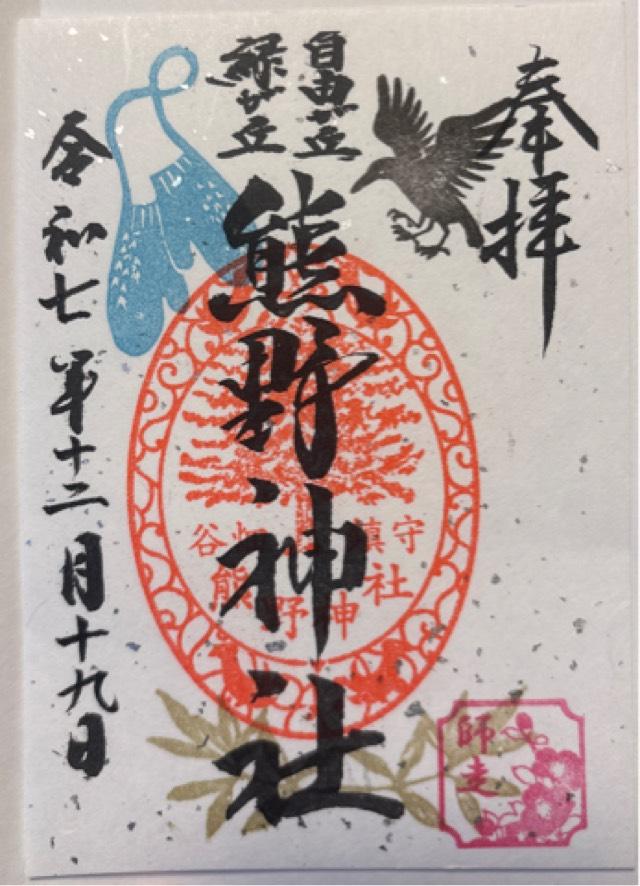 奉拝
自由が丘
緑が丘
熊野神社
令和七年十二月十九日
谷畑 鎮守
熊野神社
師走